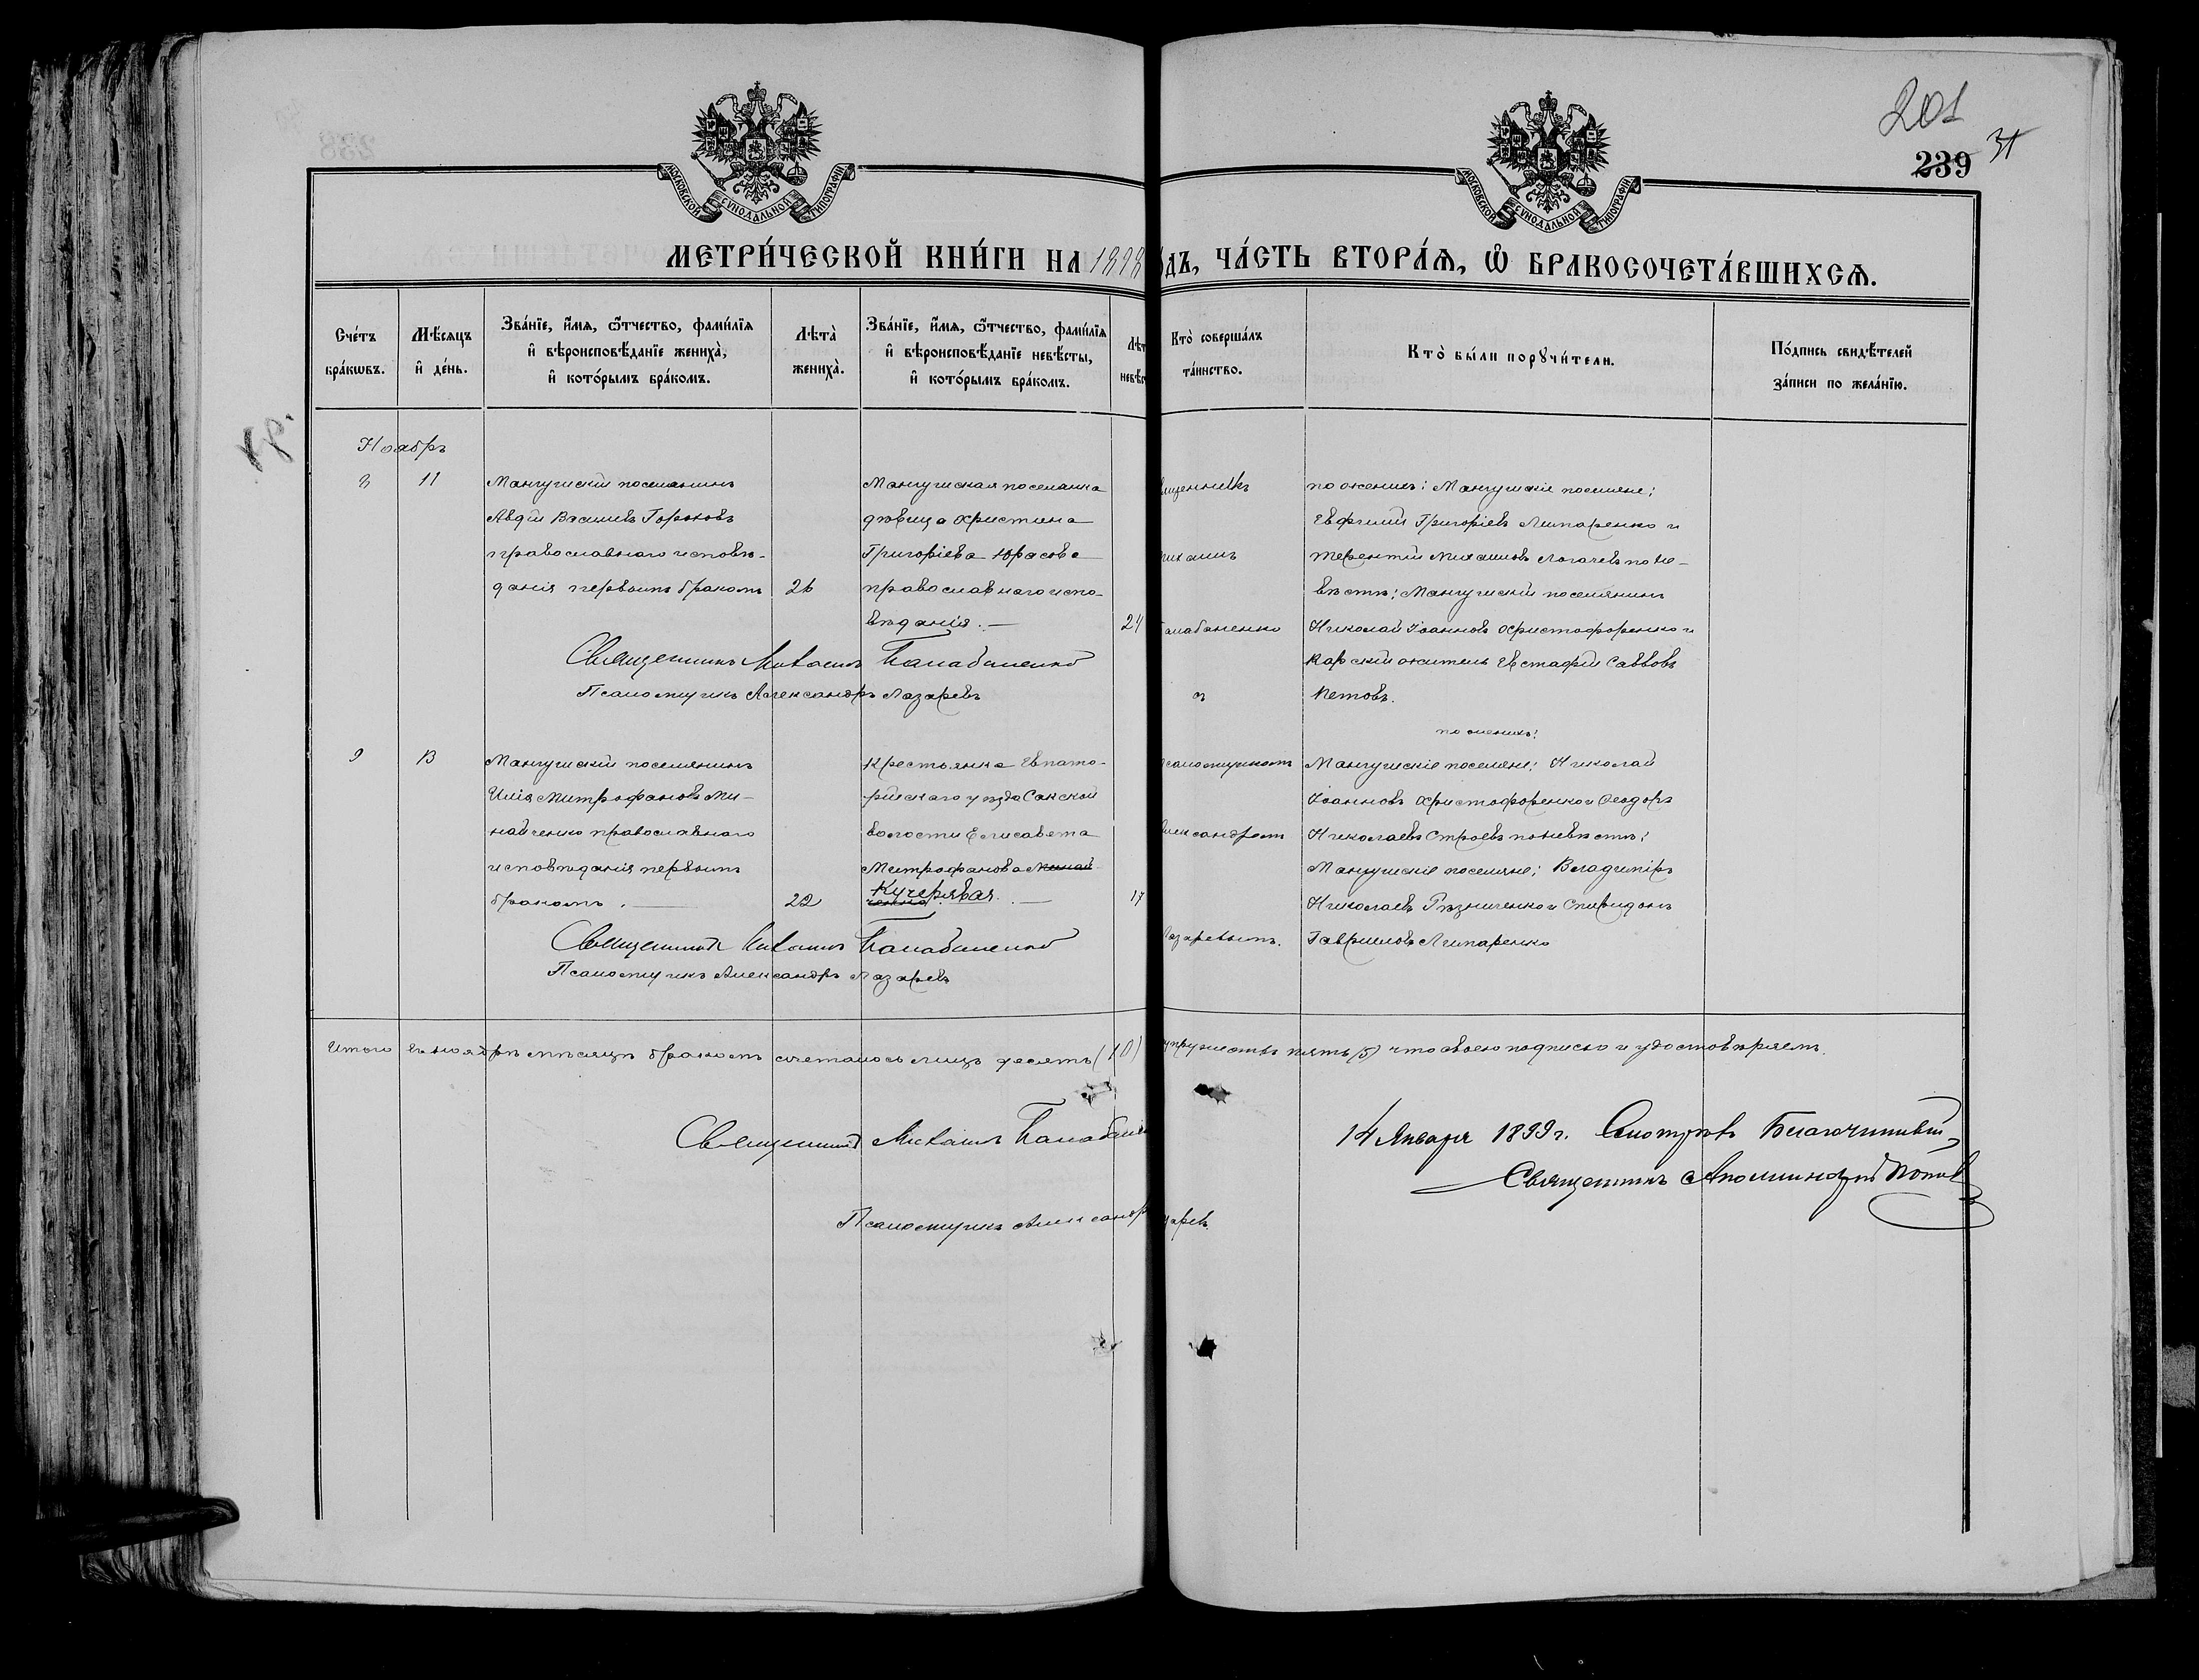 201
31
239
238
МОСКОВСКОЙ СѴНОДАЛЬНОЙ ТИПОГРАФІИ
МОСКОВСКОЙ СѴНОДАЛЬНОЙ ТИПОГРАФІИ
МЕТРИ́ЧЕСКОЙ КНИ́ГИ НА 1898 ДЪ, ЧА́СТЬ ВТОРА́Ѧ, Ѽ БРАКОСОЧЕТА́ВШИХСѦ.
Сче́тъ бра́кωвъ.
Мѣ́сѧцъ и҆ де́нь.
Зва́нїе, и҆́мѧ, ѻ҆́тчество, фами́лїѧ
и҆ вѣроисповѣ́данїе жениха̀,
и҆ кото́рымъ бра́комъ.
Лѣта̀ жениха̀.
Зва́нїе, и҆́мѧ, ѻ҆́тчество, фами́лїѧ
и҆ вѣроисповѣ́данїе невѣ́сты,
и҆ кото́рымъ бра́комъ.
Лѣт
невѣ́с
Кто̀ соверша́лъ
та́инство.
Кто̀ бы́ли порꙋчи́тели.
По́дпись свидѣ́телей
за́писи по жела́нїю.
кр.
Ноябрь
8
11
Мангушскій поселянинъ
Авдій Васильевъ Гороховъ
православнаго исповѣ-
данія первымъ бракомъ
26
Мангушская поселянка
дѣвица Христина
Григоріева Юрасова
православнаго испо-
вѣданія. —
24
ященникъ
ихаилъ
алабаненко
съ
по женихѣ: Мангушскіе поселяне:
Евфимій Григоріевъ Липаренко и
Терентій Михаиловъ Логачевъ по не-
вѣстѣ: Мангушскій поселянинъ
Николай Іоанновъ Христофоренко и
Карскій житель Евстафій Саввовъ
Кетовъ.
Священникъ Михаилъ Балабаненко
Псаломщикъ Александръ Лазаревъ
9
13
Мангушскій поселянинъ
Илія Митрофановъ Ми-
найченко православнаго
исповѣданія первымъ
бракомъ. —
22
Крестьянка Евпато-
рійскаго уѣзда Сакской
волости Елисавета
Митрофанова Минай-
ченко
Кучерявая. —
17
саломщикомъ
лександромъ
Лазаревымъ.
по женихѣ:
Мангушскіе поселяне: Николай
Іоанновъ Христофоренко и Ѳеодоръ
Николаевъ Строевъ по невѣстѣ:
Мангушскіе поселяне: Владиміръ
Николаевъ Рѣзниченко и Спиридонъ
Гавриловъ Липаренко
Священникъ Михаилъ Балабаненко
Псаломщикъ Александръ Лазаревъ
Итого въ ноябрѣ мѣсяцѣ бракомъ сочеталось лицъ десять (10) упружествъ пять (5) что своею подписью и удостовѣряемъ.
Священникъ Михаилъ Балабане
Псаломщикъ Александръ заревъ.
14 Января 1899 г. Смотрѣвъ Благочинный
Священникъ Аполлинарій Поповъ